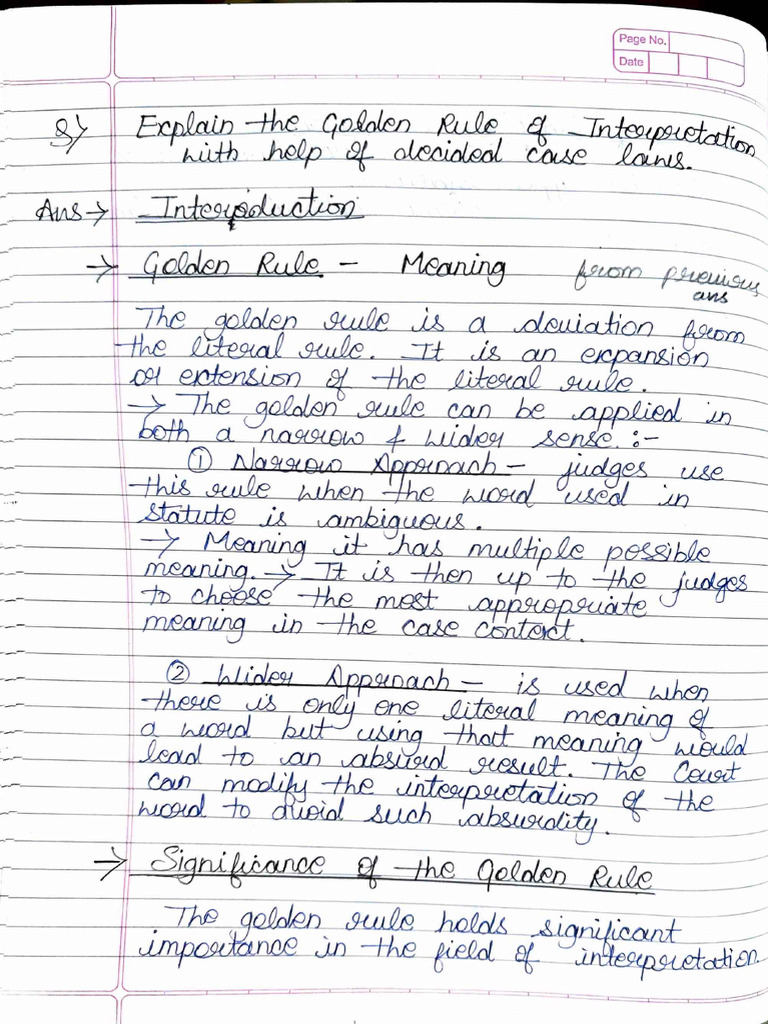 Page No.
Date
Q) Explain the Golden Rule of Interpretation
with help of decided case laws.
Ans → Interoduction
→ Golden Rule - Meaning from previous
ans
The golden rule is a deviation from
the literal rule. It is an expansion
or extension of the literal rule.
→ The golden rule can be applied in
both a narrow & wider sense :-
① Narrow Approach - judges use
this rule when the word used in
statute is ambiguous.
→ Meaning it has multiple possible
meaning. → It is then up to the judges
to choose the most appropriate
meaning in the case context.
② Wider Approach - is used when
there is only one literal meaning of
a word but using that meaning would
lead to an absurd result. The Court
can modify the interpretation of the
word to avoid such absurdity.
→ Significance of the Golden Rule
The golden rule holds significant
importance in the field of interpretation.